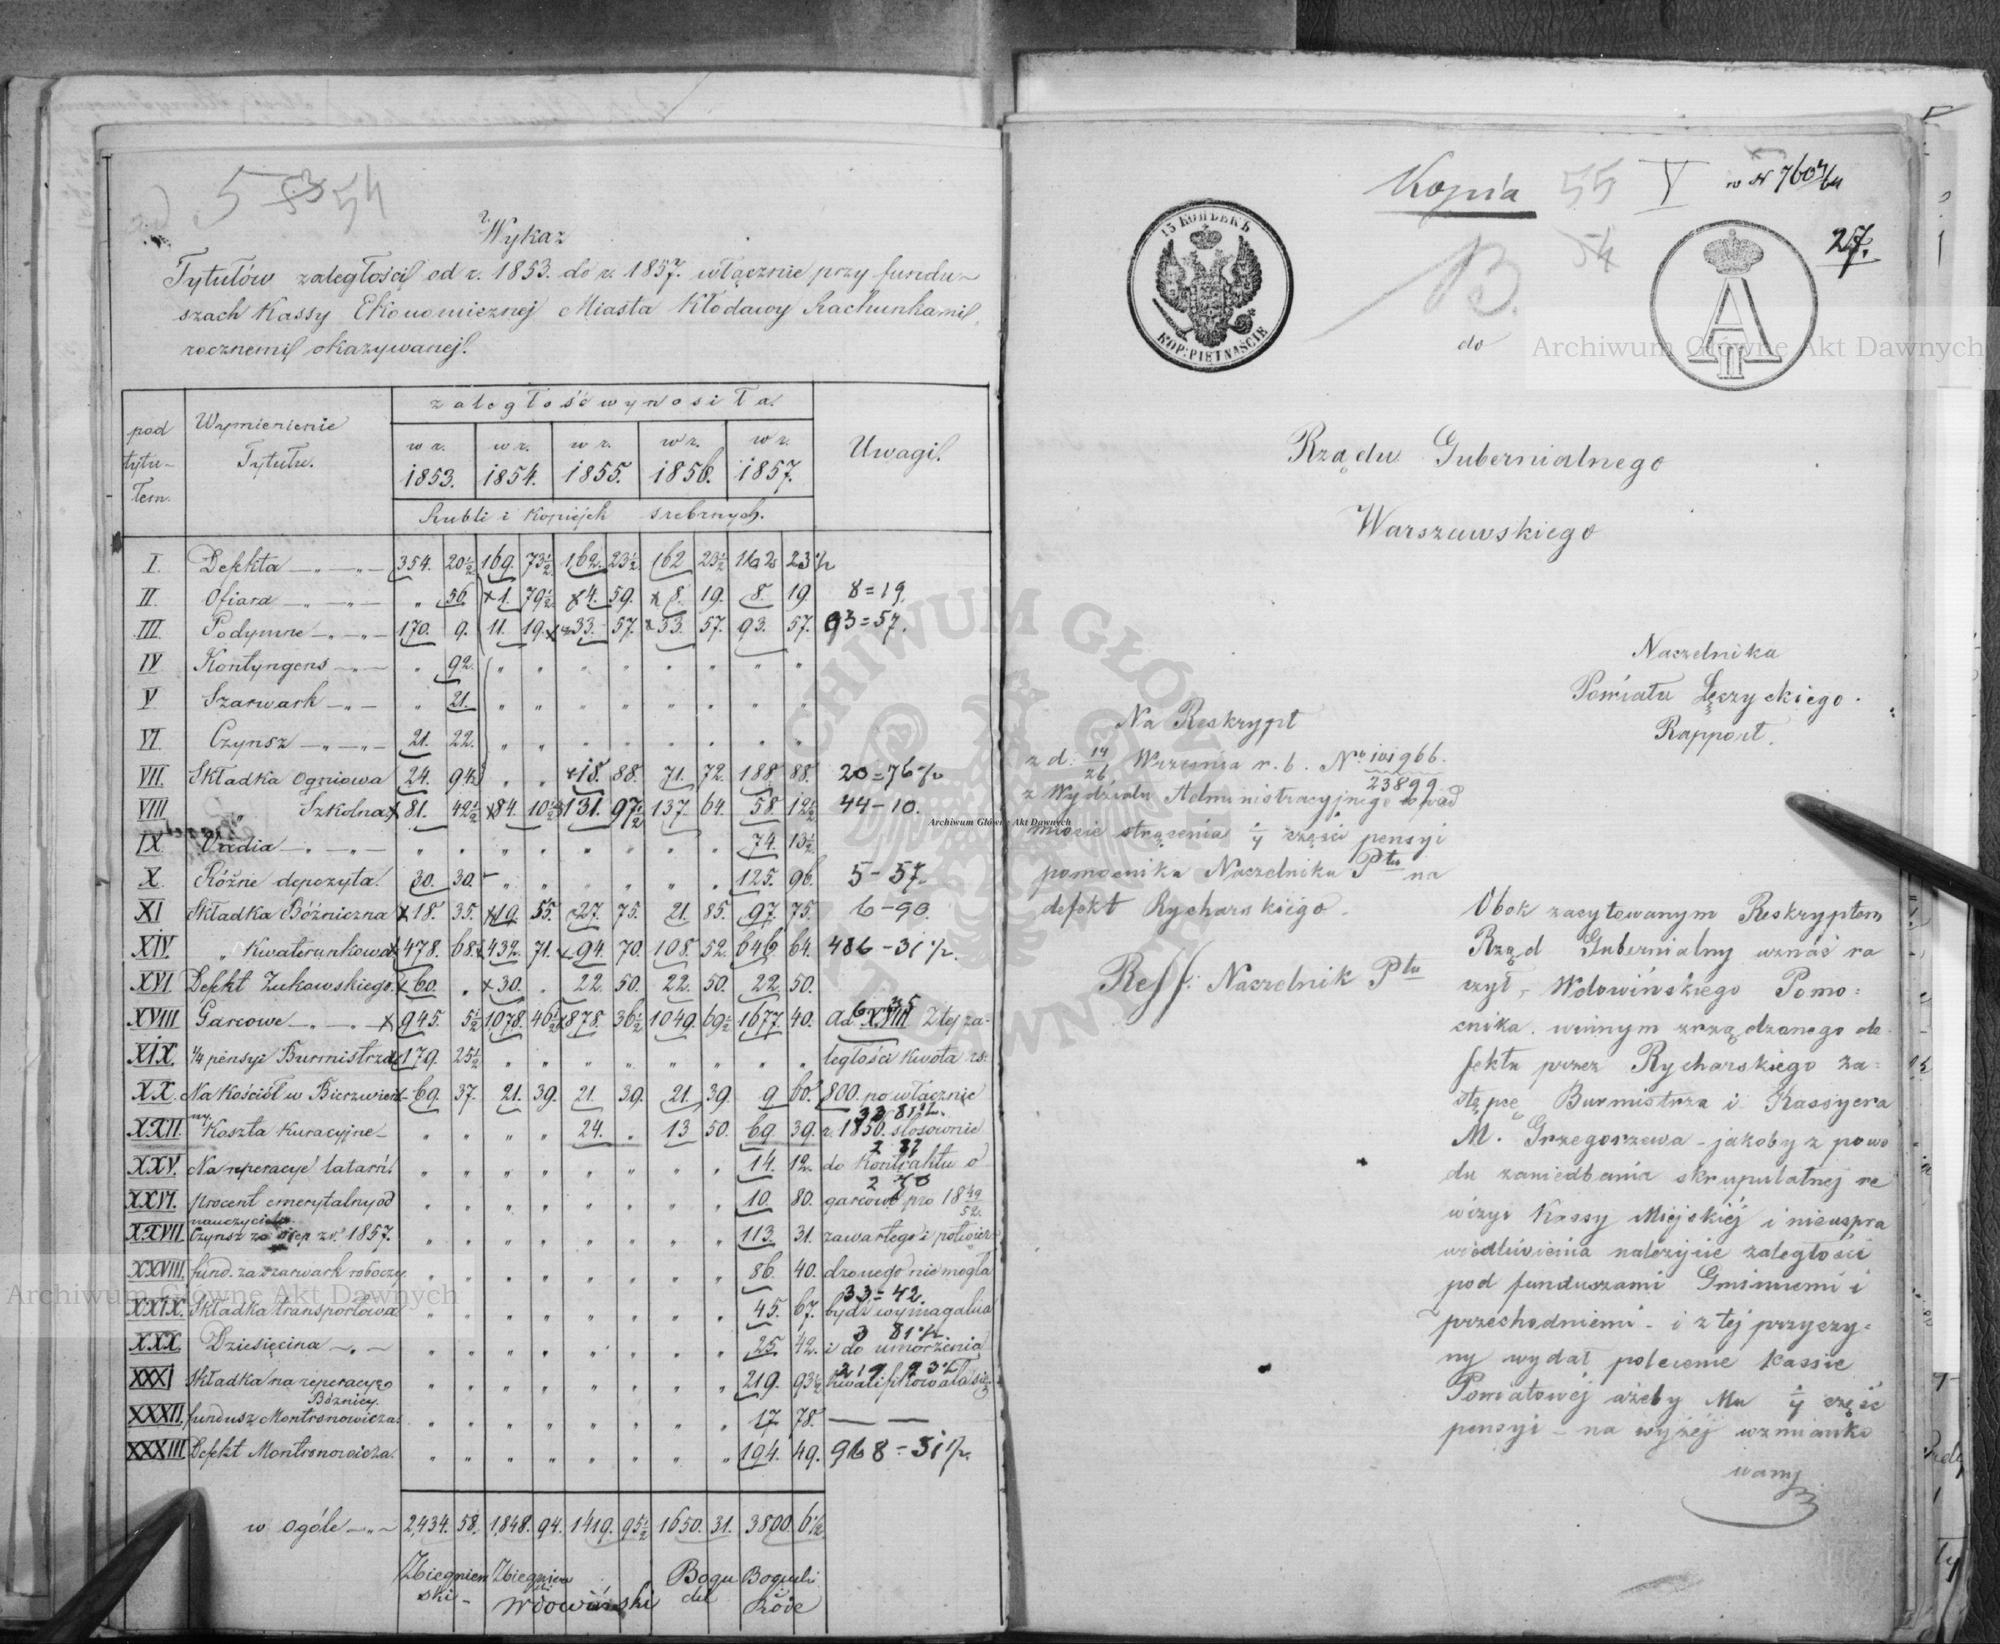 5 53 54
Wykaz
Tytułów zaległości od r. 1853. do r. 1857. włącznie przy fundu-
szach Kassy Ekonomicznej Miasta Kłodawy Rachunkami
rocznemi okazywanej.
pod tytu- łem. Wymienienie Tytułu. zaległość wynosiła Uwagi.
w r. 1853. w r. 1854. w r. 1855. w r. 1856. w r. 1857.
Rubli i Kopiejek srebrnych.
I. Defekta 354. 20½ 169. 73½ 162. 23½ 162 23½ 162 23½
II. Ofiara " 56. 1. 79½ 4. 59. 8. 19. 8. 19. 8=19.
III. Podymne 170. 9. 11. 19. 33. 57. 33. 57. 93. 57. 93=57.
IV Kontyngens " 92. " " " " " " " "
V Szarwark " 21. " " " " " " " "
VI Czynsz 21. 22. " " " " " " " "
VII. Składka Ogniowa 24. 94½ " " 18. 88. 71. 72. 188 88. 20=76½
VIII " Szkolna 81. 42½ 84. 10½ 131. 97½ 137. 64. 58. 12½ 44-10.
IX Vadia " " " " " " " " 74. 13½
X Różne depozyta. 30. 30. " " " " " " 125. 96. 5-57.
XI Składka Bóżniczna 18. 35. 19. 55. 27. 75. 21. 85. 97. 75. 6-90.
XIV " Kwaterunkowa 478. 68½ 432. 71. 94. 70. 108. 52. 646 64. 486-31½.
XVI Defekt Zukowskiego. 60. " 30. . 22. 50. 22. 50. 22. 50.
XVIII Garcowe 945. 5½ 1078. 46½ 878. 36½ 1049. 69½ 1677. 40. ad XVIII Z tej za-
XIX. ¼ pensyi Burmistrza 179. 25½ " " " " " " " " ległości kwota rs.
XX. Na Kościół w Bierzwien- 69. 37. 21. 39. 21. 39. 21. 39. 9 60. 800. po włącznie
ny
33 81½.
XXII Koszta Kuracyjne " " " " 24. " 13 50. 69. 39. r. 1850. stosownie
XXV. Na reperacyę latarń. " " " " " " " " 14. 12. do Kontraktu o
XXVI. procent emerytalny od " " " " " " " " 10. 80. garcowe pro 18 49/52.
nauczyciela
XXVII Czynsz za r. 1857. " " " " " " " " 113. 31. zawartego i potwier-
XXVIII. fund. za szarwark roboczy. " " " " " " " " 86. 40. dzonego nie mogła
33=42.
XXIX. Składka transportowa " " " " " " " " 45. 67. bydź wymagalna
3 81½.
XXX. Dziesięcina " " " " " " " " 25. 42. i do umorzenia
219 93½
XXXI Składka na reperacyę " " " " " " " " 219. 93½ kwalifikowała się
Bóżnicy.
XXXII. fundusz Montronowicza. " " " " " " " " 17 78. — —
XXXIII. Defekt Montronowicza. " " " " " " " " 194. 49. 968-31½.
w ogóle 2,434. 58. 1,848. 94. 1419. 95½ 1650. 31. 3800. 6½
Zbiegniew Zbiegniew Bogu Bogucki
ski- ski Wdowiński cki i
Kopia 55 V
B. 54
w N 760 4/64
27.
15 КОПѢЕКЪ
KOP: PIĘTNAŚCIE
A II
do
Rządu Gubernialnego
Warszawskiego
Naczelnika
Powiatu Łęczyckiego.
Rapport.
Na Reskrypt
z d. 14/26 Września r. b. No 101966.
23899
z Wydziału Administracyjnego w przed
miocie strącenia ¼ części pensyi
pomocnika Naczelnika Ptu na
defekt Rycharskiego.
Reff: Naczelnik Ptu
Obok zacytowanym Reskryptem
Rząd Gubernialny uznać ra
czył, Wdowińskiego Pomo=
cnika. winnym zrządzonego de-
fektu przez Rycharskiego za=
stępcę Burmistrza i Kassyera
M. Grzegorzewa – jakoby z powo
du zaniedbania skrupulatnej re
wizyi Kassy Miejskiéj i nieuspra
wiedliwienia należycie zaległości
pod funduszami Gminnemi i
przechodniemi – i z téj przyczy=
ny wydał polecenie Kassie
Powiatowéj ażeby Mu ¼ część
pensyi – na wyżéj wzmianko
wany
Archiwum Główne Akt Dawnych
Archiwum Główne Akt Dawnych
Archiwum Główne Akt Dawnych
ARCHIWUM GŁÓWNE AKT DAWNYCH